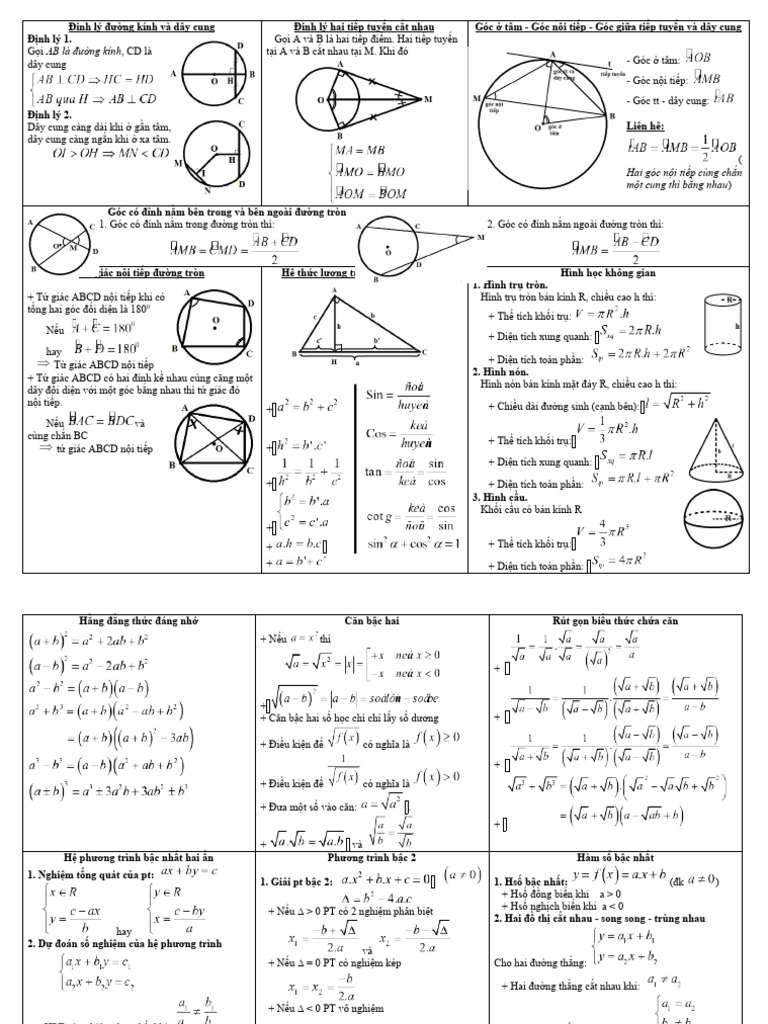 Định lý đường kính và dây cung
Định lý 1.
Gọi AB là đường kính, CD là
dây cung
AB ⊥ CD ⇒ HC = HD
AB qua H ⇒ AB ⊥ CD
Định lý 2.
Dây cung càng dài khi ở gần tâm,
dây cung càng ngắn khi ở xa tâm.
OI > OH ⇒ MN < CD
Định lý hai tiếp tuyến cắt nhau
Gọi A và B là hai tiếp điểm. Hai tiếp tuyến
tại A và B cắt nhau tại M. Khi đó
MA = MB
AMO = BMO
AOM = BOM
Góc ở tâm - Góc nôi tiếp - Góc giữa tiếp tuyến và dây cung
- Góc ở tâm: AOB
- Góc nội tiếp: AMB
- Góc tt - dây cung: tAB
Liên hệ:
tAB = AMB = 1/2 AOB
(
Hai góc nội tiếp cùng chắn
một cung thì bằng nhau)
góc tt và
dây cung
tiếp tuyến
góc nội
tiếp
góc ở
tâm
Góc có đỉnh nằm bên trong và bên ngoài đường tròn
1. Góc có đỉnh nằm trong đường tròn thì:
AMB = CMD = (AB + CD)/2
2. Góc có đỉnh nằm ngoài đường tròn thì:
AMB = (AB − CD)/2
giác nôi tiếp đường tròn
+ Tứ giác ABCD nội tiếp khi có
tổng hai góc đối diện là 180⁰
Nếu A + C = 180⁰
hay B + D = 180⁰
⇒ Tứ giác ABCD nội tiếp
+ Tứ giác ABCD có hai đỉnh kề nhau cùng căng một
dây đối diện với một góc bằng nhau thì tứ giác đó
nội tiếp.
Nếu BAC = BDC và
cùng chắn BC
⇒ tứ giác ABCD nội tiếp
Hê thức lương t
+ a² = b² + c²
+ h² = b'.c'
+ 1/h² = 1/b² + 1/c²
+ b² = b'.a
c² = c'.a
+ a.h = b.c
+ a = b'+ c'
Sin = ñoái/huyeàn
Cos = keà/huyeàn
tan = ñoái/keà = sin/cos
cot g = keà/ñoái = cos/sin
sin² α + cos² α = 1
Hình học không gian
1. Hình trụ tròn.
Hình trụ tròn bán kính R, chiều cao h thì:
+ Thể tích khối trụ: V = πR².h
+ Diện tích xung quanh: Sxq = 2πR.h
+ Diện tích toàn phần: Stp = 2πR.h + 2πR²
2. Hình nón.
Hình nón bán kính mặt đáy R, chiều cao h thì:
+ Chiều dài đường sinh (cạnh bên): l = √(R² + h²)
+ Thể tích khối trụ: V = 1/3 πR².h
+ Diện tích xung quanh: Sxq = πR.l
+ Diện tích toàn phần: Stp = πR.l + πR²
3. Hình cầu.
Khối cầu có bán kính R
+ Thể tích khối trụ: V = 4/3 πR³
+ Diện tích toàn phần: Stp = 4πR²
Hằng đẳng thức đáng nhớ
(a + b)² = a² + 2ab + b²
(a − b)² = a² − 2ab + b²
a² − b² = (a + b)(a − b)
a³ + b³ = (a + b)(a² − ab + b²)
= (a + b)((a + b)² − 3ab)
a³ − b³ = (a − b)(a² + ab + b²)
(a ± b)³ = a³ ± 3a²b + 3ab² ± b³
Căn bậc hai
+ Nếu a = x² thì
√a = √x² = |x| = +x neáu x ≥ 0
−x neáu x < 0
+ √(a − b)² = |a − b| = soá lôùn − soá beù
+ Căn bậc hai số học chỉ chỉ lấy số dương
+ Điều kiện để √f(x) có nghĩa là f(x) ≥ 0
+ Điều kiện để 1/√f(x) có nghĩa là f(x) > 0
+ Đưa một số vào căn: a = √a².
+ √a.√b = √a.b và √(a/b) = √a/√b
Rút gọn biểu thức chứa căn
+ 1/√a = 1/√a . √a/√a = √a/(√a)² = √a/a
+ 1/(√a − √b) = 1/(√a − √b) . (√a + √b)/(√a + √b) = (√a + √b)/(a − b)
+ 1/(√a + √b) = 1/(√a + √b) . (√a − √b)/(√a − √b) = (√a − √b)/(a − b)
√a³ + √b³ = (√a + √b).(√a² − √a√b + √b²)
+ = (√a + √b)(a − √ab + b)
Hệ phương trình bậc nhất hai ẩn
1. Nghiệm tổng quát của pt: ax + by = c
x ∈ R
y = (c − ax)/b
hay
y ∈ R
x = (c − by)/a
2. Dự đoán số nghiệm của hệ phương trình
a₁x + b₁y = c₁
a₂x + b₂y = c₂
a₁/a₂ ≠ b₁/b₂
Phương trình bậc 2
1. Giải pt bậc 2: a.x² + b.x + c = 0 (a ≠ 0)
Δ = b² − 4.a.c
+ Nếu Δ > 0 PT có 2 nghiệm phân biệt
x₁ = (−b + √Δ)/2.a và x₂ = (−b − √Δ)/2.a
+ Nếu Δ = 0 PT có nghiệm kép
x₁ = x₂ = −b/2.a
+ Nếu Δ < 0 PT vô nghiệm
Hàm số bậc nhất
1. Hsố bậc nhất: y = f(x) = a.x + b (đk a ≠ 0)
+ Hsố đồng biến khi a > 0
+ Hsố nghịch biến khi a < 0
2. Hai đồ thị cắt nhau - song song - trùng nhau
Cho hai đường thẳng: y = a₁x + b₁
y = a₂x + b₂
+ Hai đường thẳng cắt nhau khi: a₁ ≠ a₂
a₁ = a₂